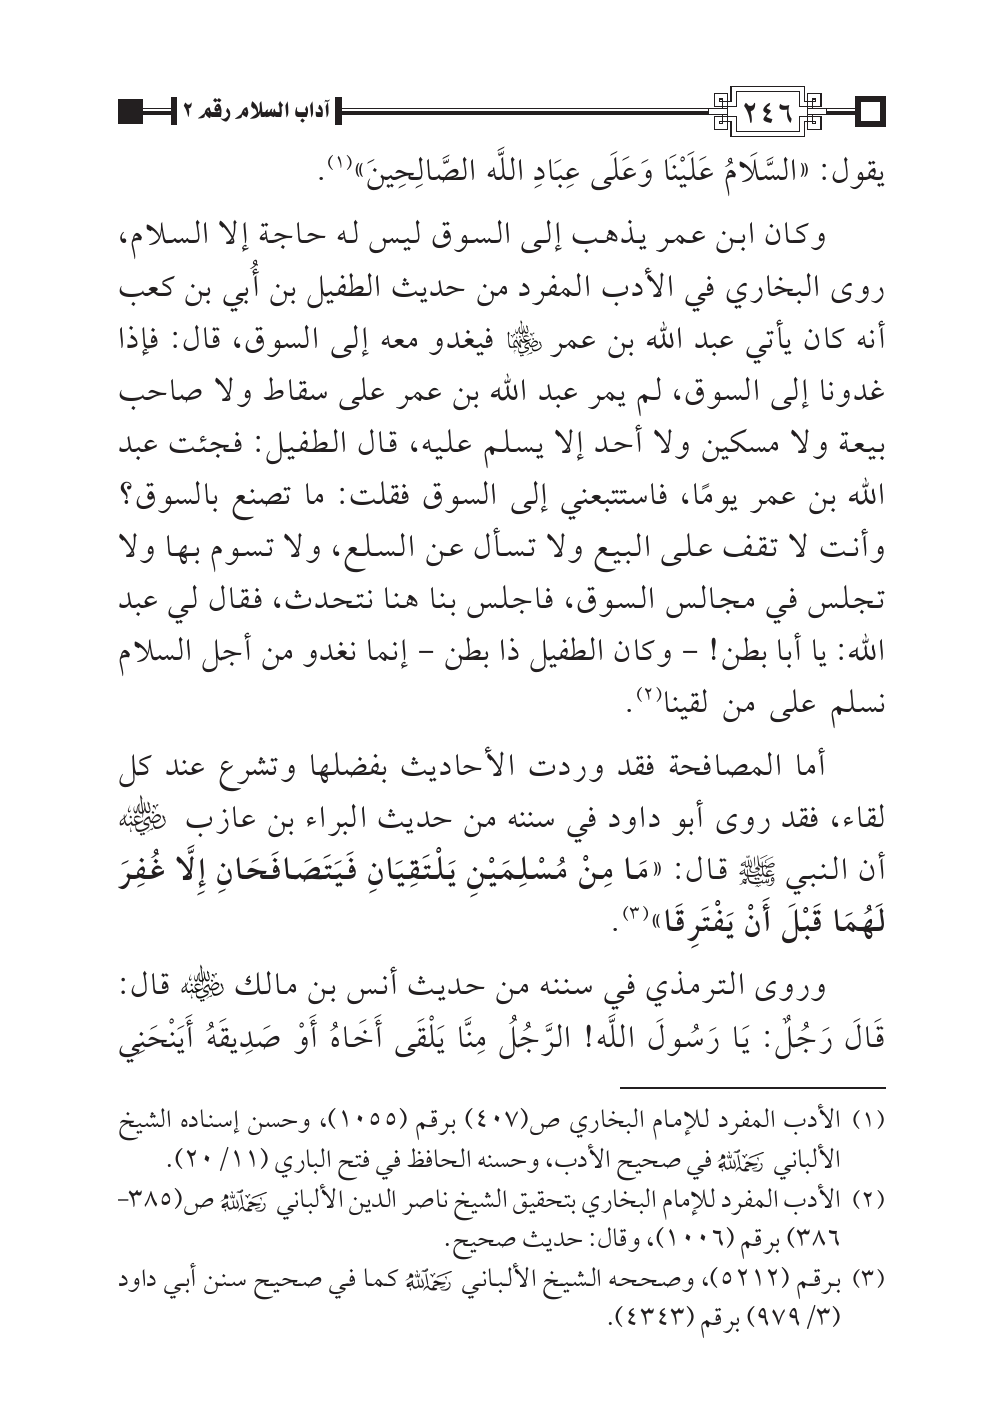 ٢٤٦ آداب السلام رقم ٢
يقول: «السَّلَامُ عَلَيْنَا وَعَلَى عِبَادِ اللَّه الصَّالِحِينَ»(١).
وكان ابن عمر يذهب إلى السوق ليس له حاجة إلا السلام،
روى البخاري في الأدب المفرد من حديث الطفيل بن أُبي بن كعب
أنه كان يأتي عبد الله بن عمر رضي الله عنهما فيغدو معه إلى السوق، قال: فإذا
غدونا إلى السوق، لم يمر عبد الله بن عمر على سقاط ولا صاحب
بيعة ولا مسكين ولا أحد إلا يسلم عليه، قال الطفيل: فجئت عبد
الله بن عمر يومًا، فاستتبعني إلى السوق فقلت: ما تصنع بالسوق؟
وأنت لا تقف على البيع ولا تسأل عن السلع، ولا تسوم بها ولا
تجلس في مجالس السوق، فاجلس بنا هنا نتحدث، فقال لي عبد
الله: يا أبا بطن! – وكان الطفيل ذا بطن – إنما نغدو من أجل السلام
نسلم على من لقينا(٢).
أما المصافحة فقد وردت الأحاديث بفضلها وتشرع عند كل
لقاء، فقد روى أبو داود في سننه من حديث البراء بن عازب رضي الله عنه
أن النبي ﷺ قال: «مَا مِنْ مُسْلِمَيْنِ يَلْتَقِيَانِ فَيَتَصَافَحَانِ إِلَّا غُفِرَ
لَهُمَا قَبْلَ أَنْ يَفْتَرِقَا»(٣).
وروى الترمذي في سننه من حديث أنس بن مالك رضي الله عنه قال:
قَالَ رَجُلٌ: يَا رَسُولَ اللَّه! الرَّجُلُ مِنَّا يَلْقَى أَخَاهُ أَوْ صَدِيقَهُ أَيَنْحَنِي
(١) الأدب المفرد للإمام البخاري ص(٤٠٧) برقم (١٠٥٥)، وحسن إسناده الشيخ
الألباني رحمه الله في صحيح الأدب، وحسنه الحافظ في فتح الباري (١١/ ٢٠).
(٢) الأدب المفرد للإمام البخاري بتحقيق الشيخ ناصر الدين الألباني رحمه الله ص(٣٨٥-
٣٨٦) برقم (١٠٠٦)، وقال: حديث صحيح.
(٣) برقم (٥٢١٢)، وصححه الشيخ الألباني رحمه الله كما في صحيح سنن أبي داود
(٣/ ٩٧٩) برقم (٤٣٤٣).